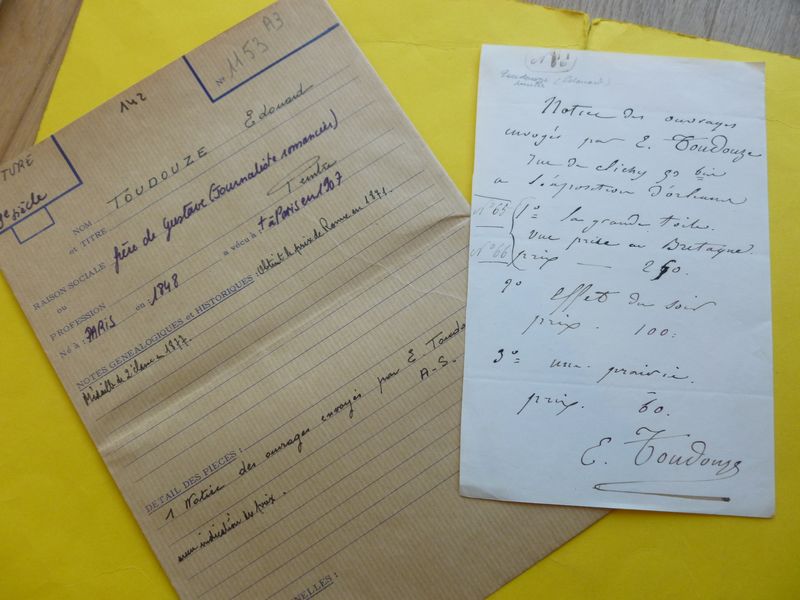 TURE
siècle
142
N° 1153 A3
NOM TOUDOUZE Edouard
et TITRE
frère de Gustave (Journaliste romancier)
Peintre
RAISON SOCIALE
ou
PROFESSION
Né à : PARIS en 1848 a vécu à : † à Paris en 1907
NOTES GENEALOGIQUES et HISTORIQUES : Obtint le prix de Rome en 1871.
Médaille de 2e classe en 1877.
DETAIL DES PIECES :
1 Notice des ouvrages envoyés par E. Toudou
A.S.
avec indication des prix.
NELLES :
Toudouze (Edouard)
Notice des ouvrages
envoyés par E. Toudouze
rue de clichy bis
a l'exposition d'orleans
N° 65 1° la grande toile
vue prise en Bretagne.
N° 66 prix — 250.
2° effet du soir
prix. 100.
3° une prairie.
prix. 60.
E. Toudouze